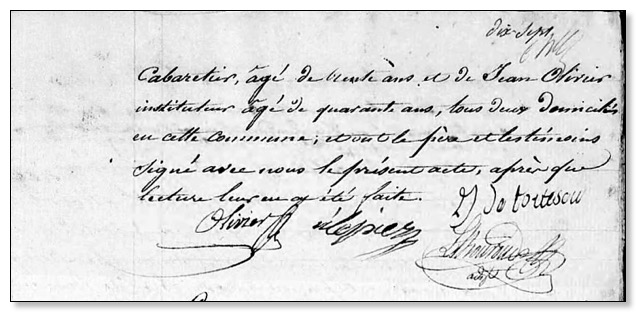 dix-sept
Cabaretier, âgé de trente ans et de Jean Olivier
instituteur âgé de quarante ans, tous deux domiciliés
en cette commune; et ont le père et les témoins
signé avec nous le présent acte, après que
lecture leur en a été faite.
Olivier
adjt